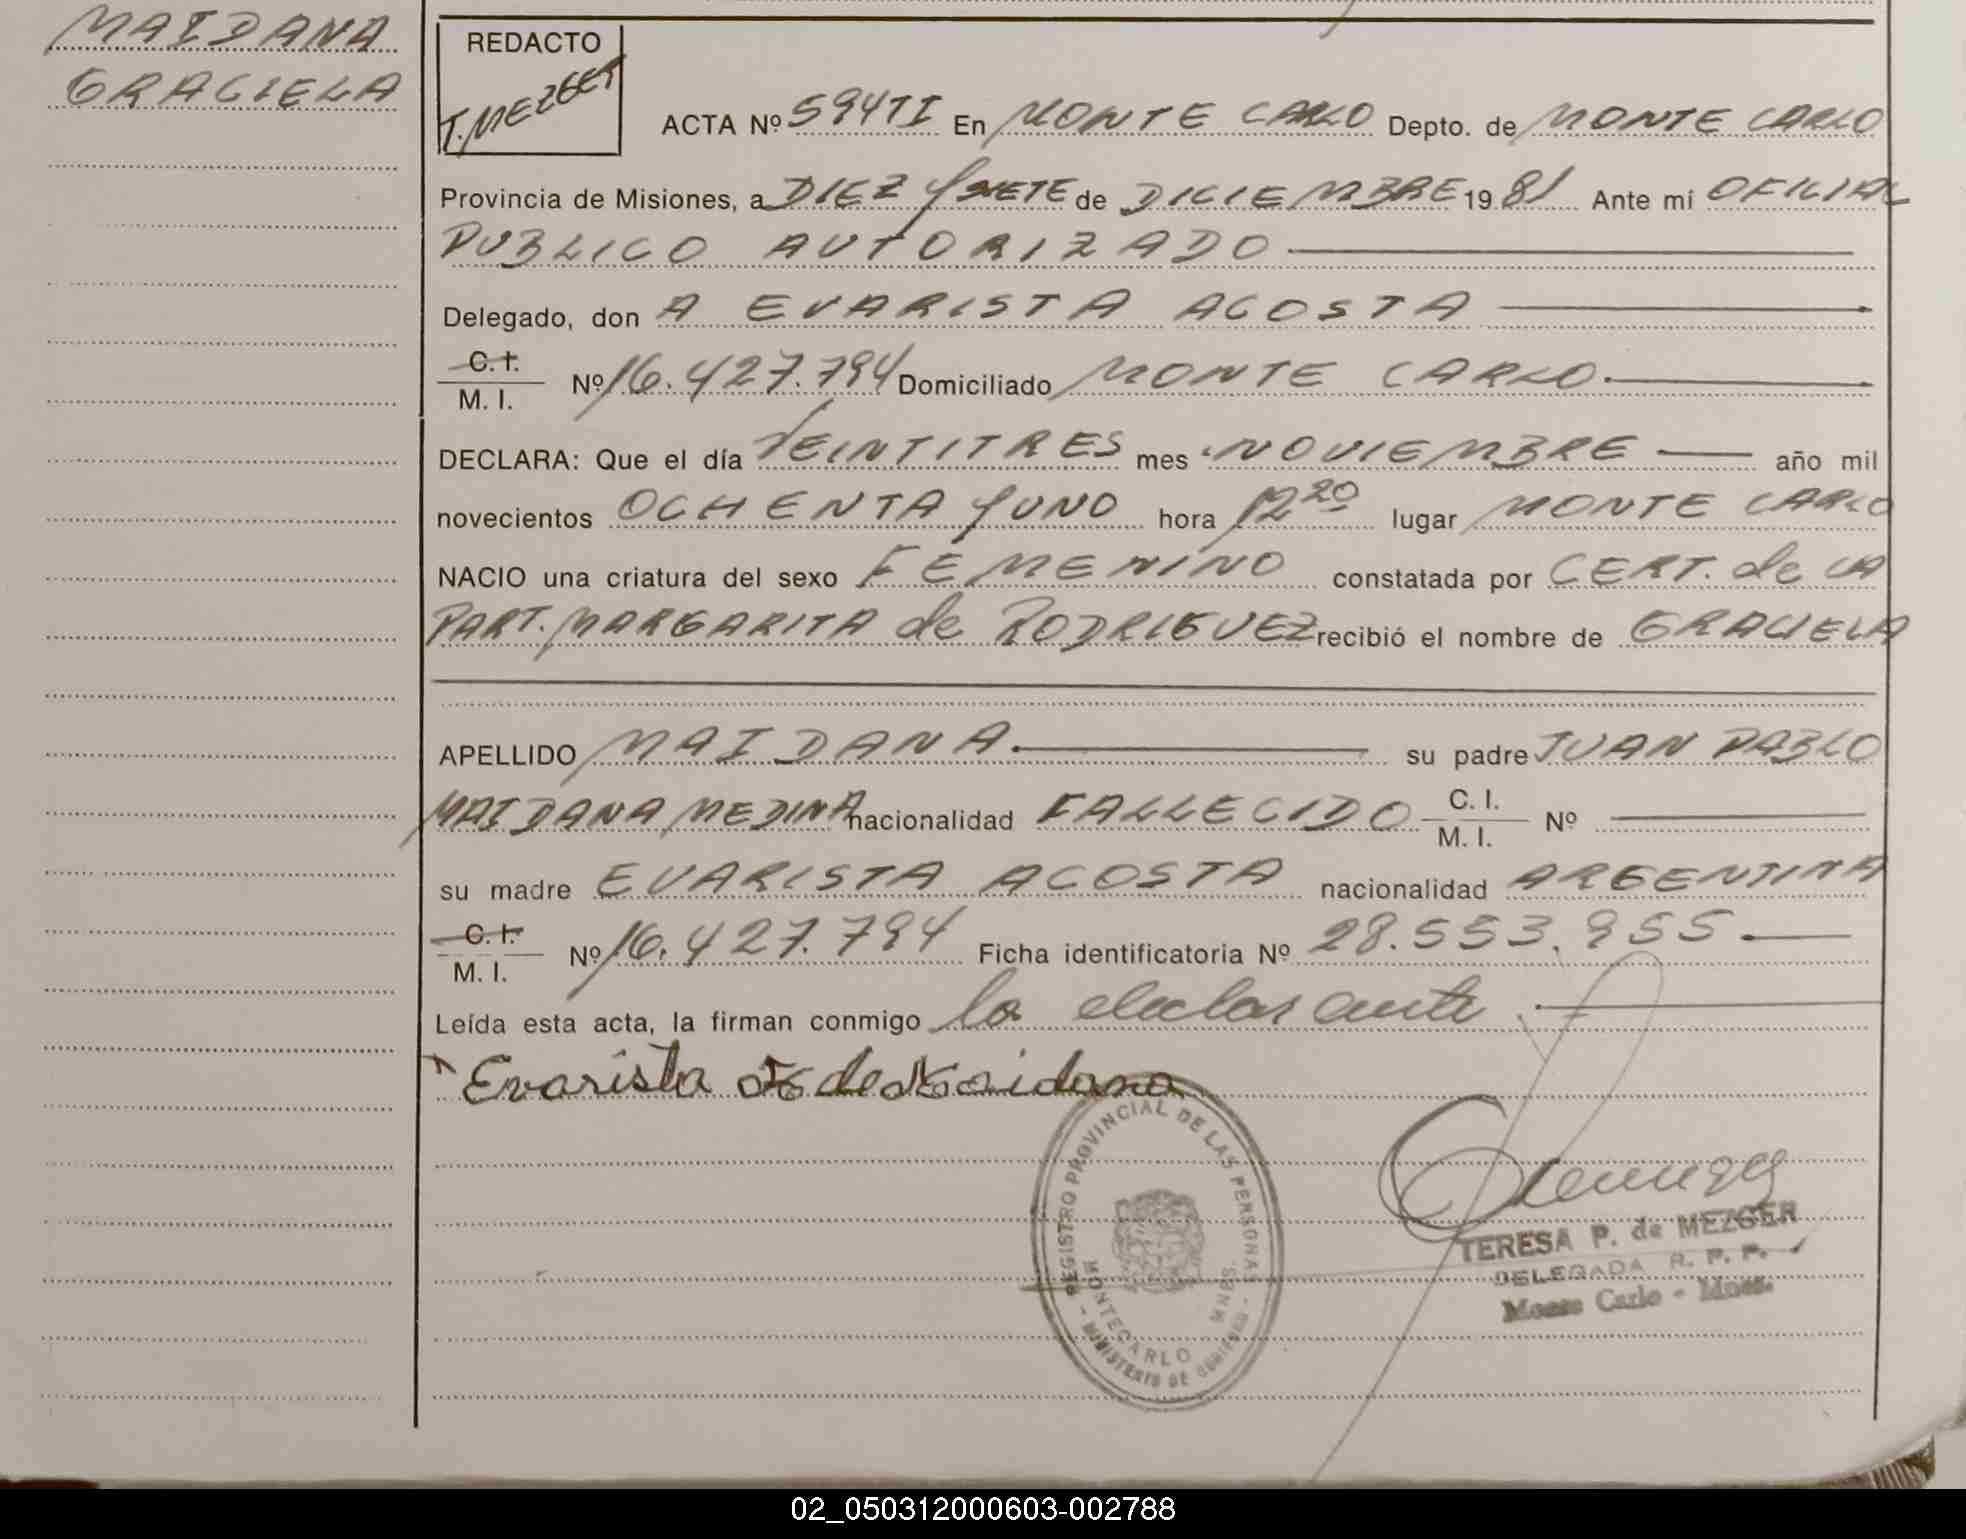 MAIDANA
GRACIELA
REDACTO
T. MEZGER
ACTA Nº 594TI En MONTE CARLO Depto. de MONTE CARLO
Provincia de Misiones, a DIEZ y SIETE de DICIEMBRE 1981 Ante mí OFICIAL
PUBLICO AUTORIZADO
Delegado, don A EVARISTA ACOSTA
C. I.
M. I. Nº 16.427.794 Domiciliado MONTE CARLO.
DECLARA: Que el día VEINTITRES mes NOVIEMBRE año mil
novecientos OCHENTA y UNO hora 12 20 lugar MONTE CARLO
NACIO una criatura del sexo FEMENINO constatada por CERT. de LA
PART. MARGARITA de RODRIGUEZ recibió el nombre de GRACIELA
APELLIDO MAIDANA. su padre JUAN PABLO
MAIDANA MEDINA nacionalidad FALLECIDO C. I. M. I. Nº
su madre EVARISTA ACOSTA nacionalidad ARGENTINA
C. I.
M. I. Nº 16.427.794 Ficha identificatoria Nº 28.553.955.
Leída esta acta, la firman conmigo la declarante.
Evarista de Maidana
REGISTRO PROVINCIAL DE LAS PERSONAS
MONTECARLO MNES.
- MINISTERIO DE GOBIERNO -
TERESA P. de MEZGER
DELEGADA R. P. P.
Monte Carlo - Mnes.
02_050312000603-002788